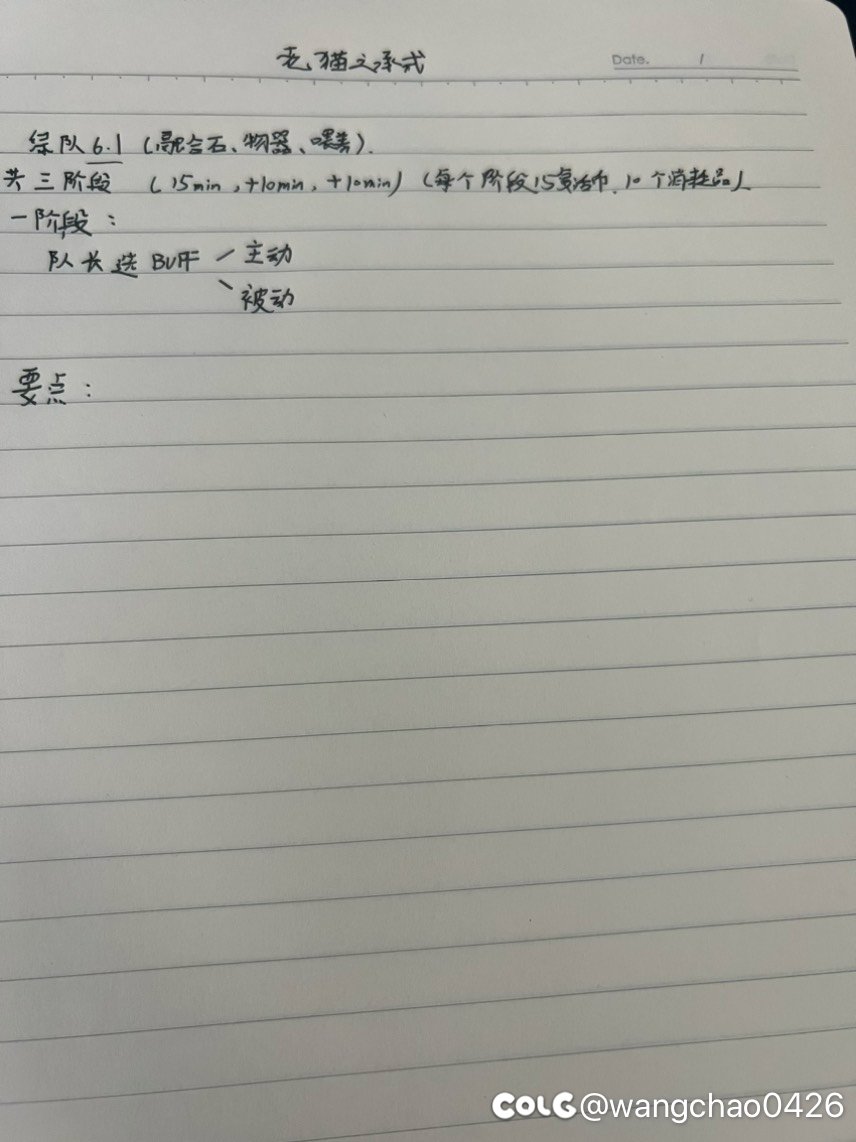 猫之
Date. /
队 6.1 (融合石、
共三阶段 (15min,+10min,+10min) (每个阶段15复活币、10个消耗品)
一阶段:
队长选 BUFF 主动
被动
要点:
COLG @wangchao0426